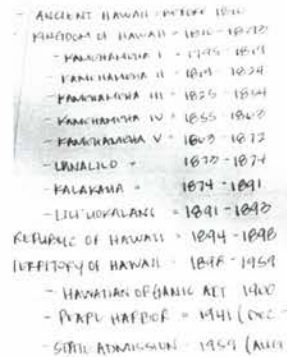 - ANCIENT HAWAII - BEFORE 1810
- KINGDOM OF HAWAII - 1810 - 1893
- KAMEHAMEHA I - 1795 - 1819
- KAMEHAMEHA II - 1819 - 1824
- KAMEHAMEHA III - 1825 - 1854
- KAMEHAMEHA IV - 1855 - 1863
- KAMEHAMEHA V - 1863 - 1872
- LUNALILO - 1873 - 1874
- KALAKAUA - 1874 - 1891
- LILI'UOKALANI - 1891 - 1893
REPUBLIC OF HAWAII - 1894 - 1898
TERRITORY OF HAWAII - 1898 - 1959
- HAWAIIAN ORGANIC ACT 1900
- PEARL HARBOR - 1941 (DEC -
- STATE ADMISSION - 1959 (AUG